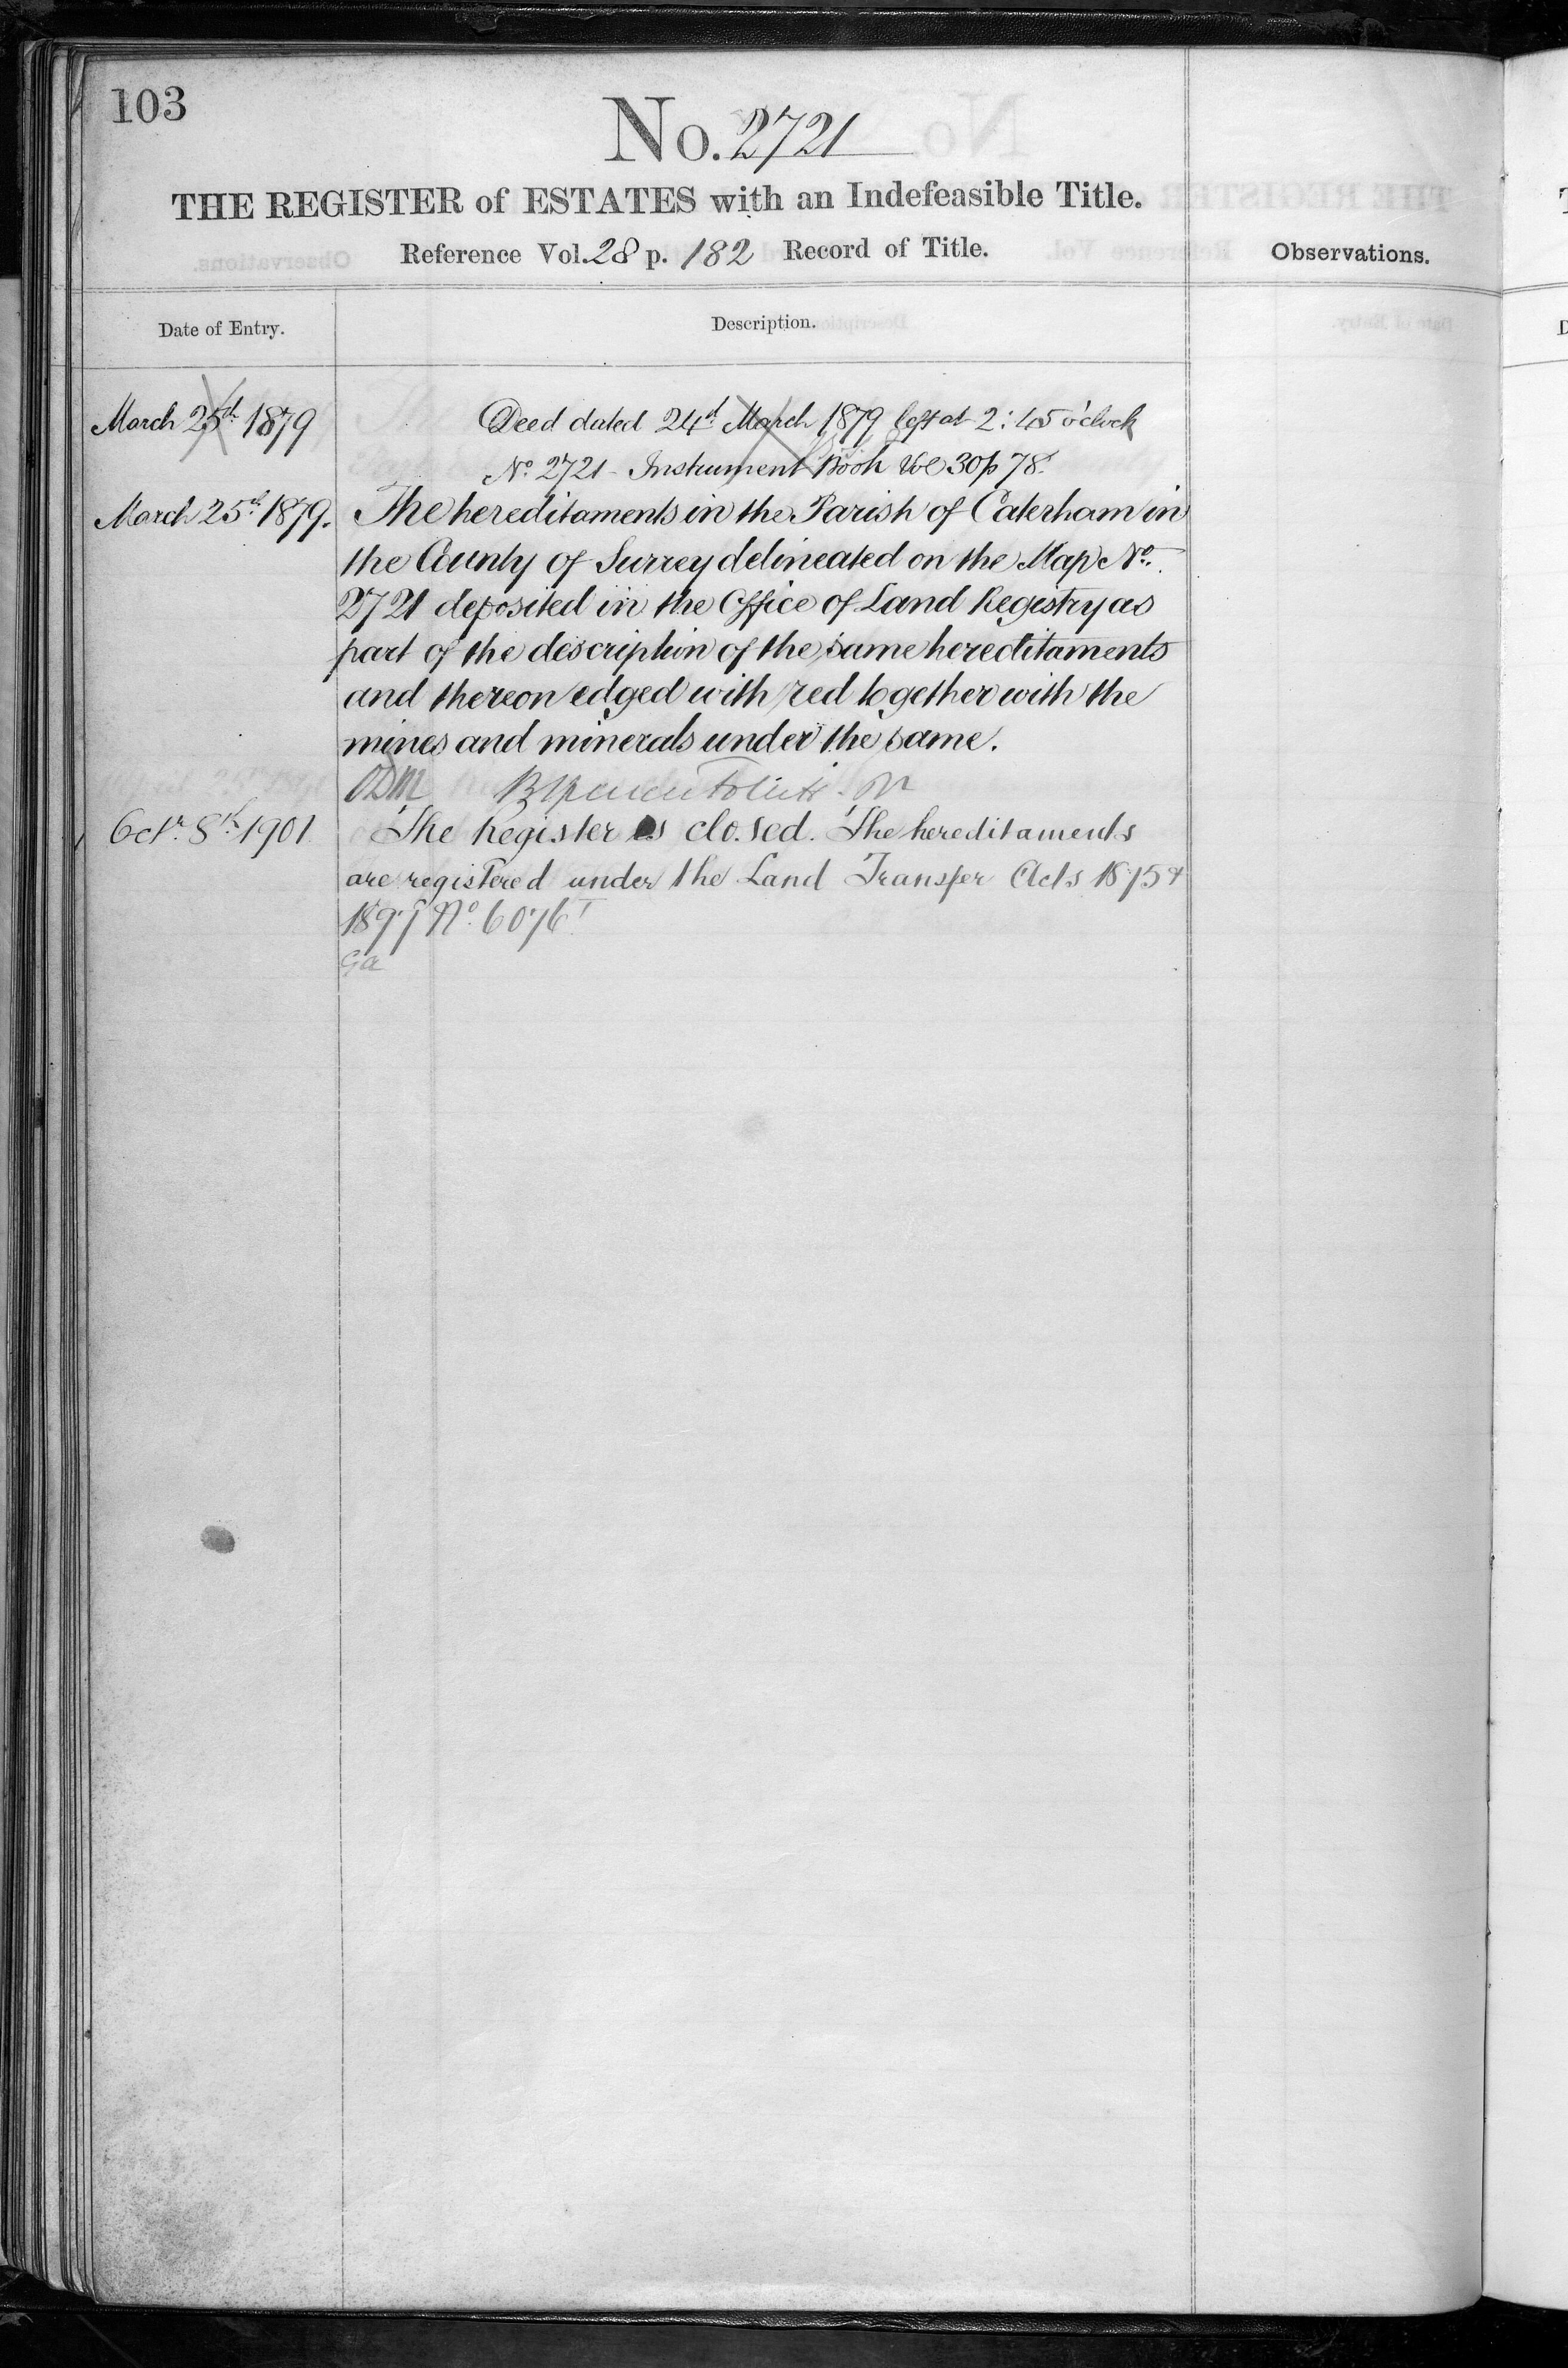 103
No. 2721
THE REGISTER of ESTATES with an Indefeasible Title.
Reference Vol. 28 p. 182 Record of Title.
Observations.
Date of Entry.
Description.
March 25th 1879
Deed dated 24th March 1879 left at 2:45 o'clock
No. 2721 - Instrument Book Vol 30 p 78.
March 25th 1879.
The hereditaments in the Parish of Caterham in
the County of Surrey delineated on the Map No.
2721 deposited in the Office of Land Registry as
part of the description of the same hereditaments
and thereon edged with red together with the
mines and minerals under the same.
Octr. 8th 1901
The Register is closed. The hereditaments
are registered under the Land Transfer Acts 1875 &
1897 No. 6076